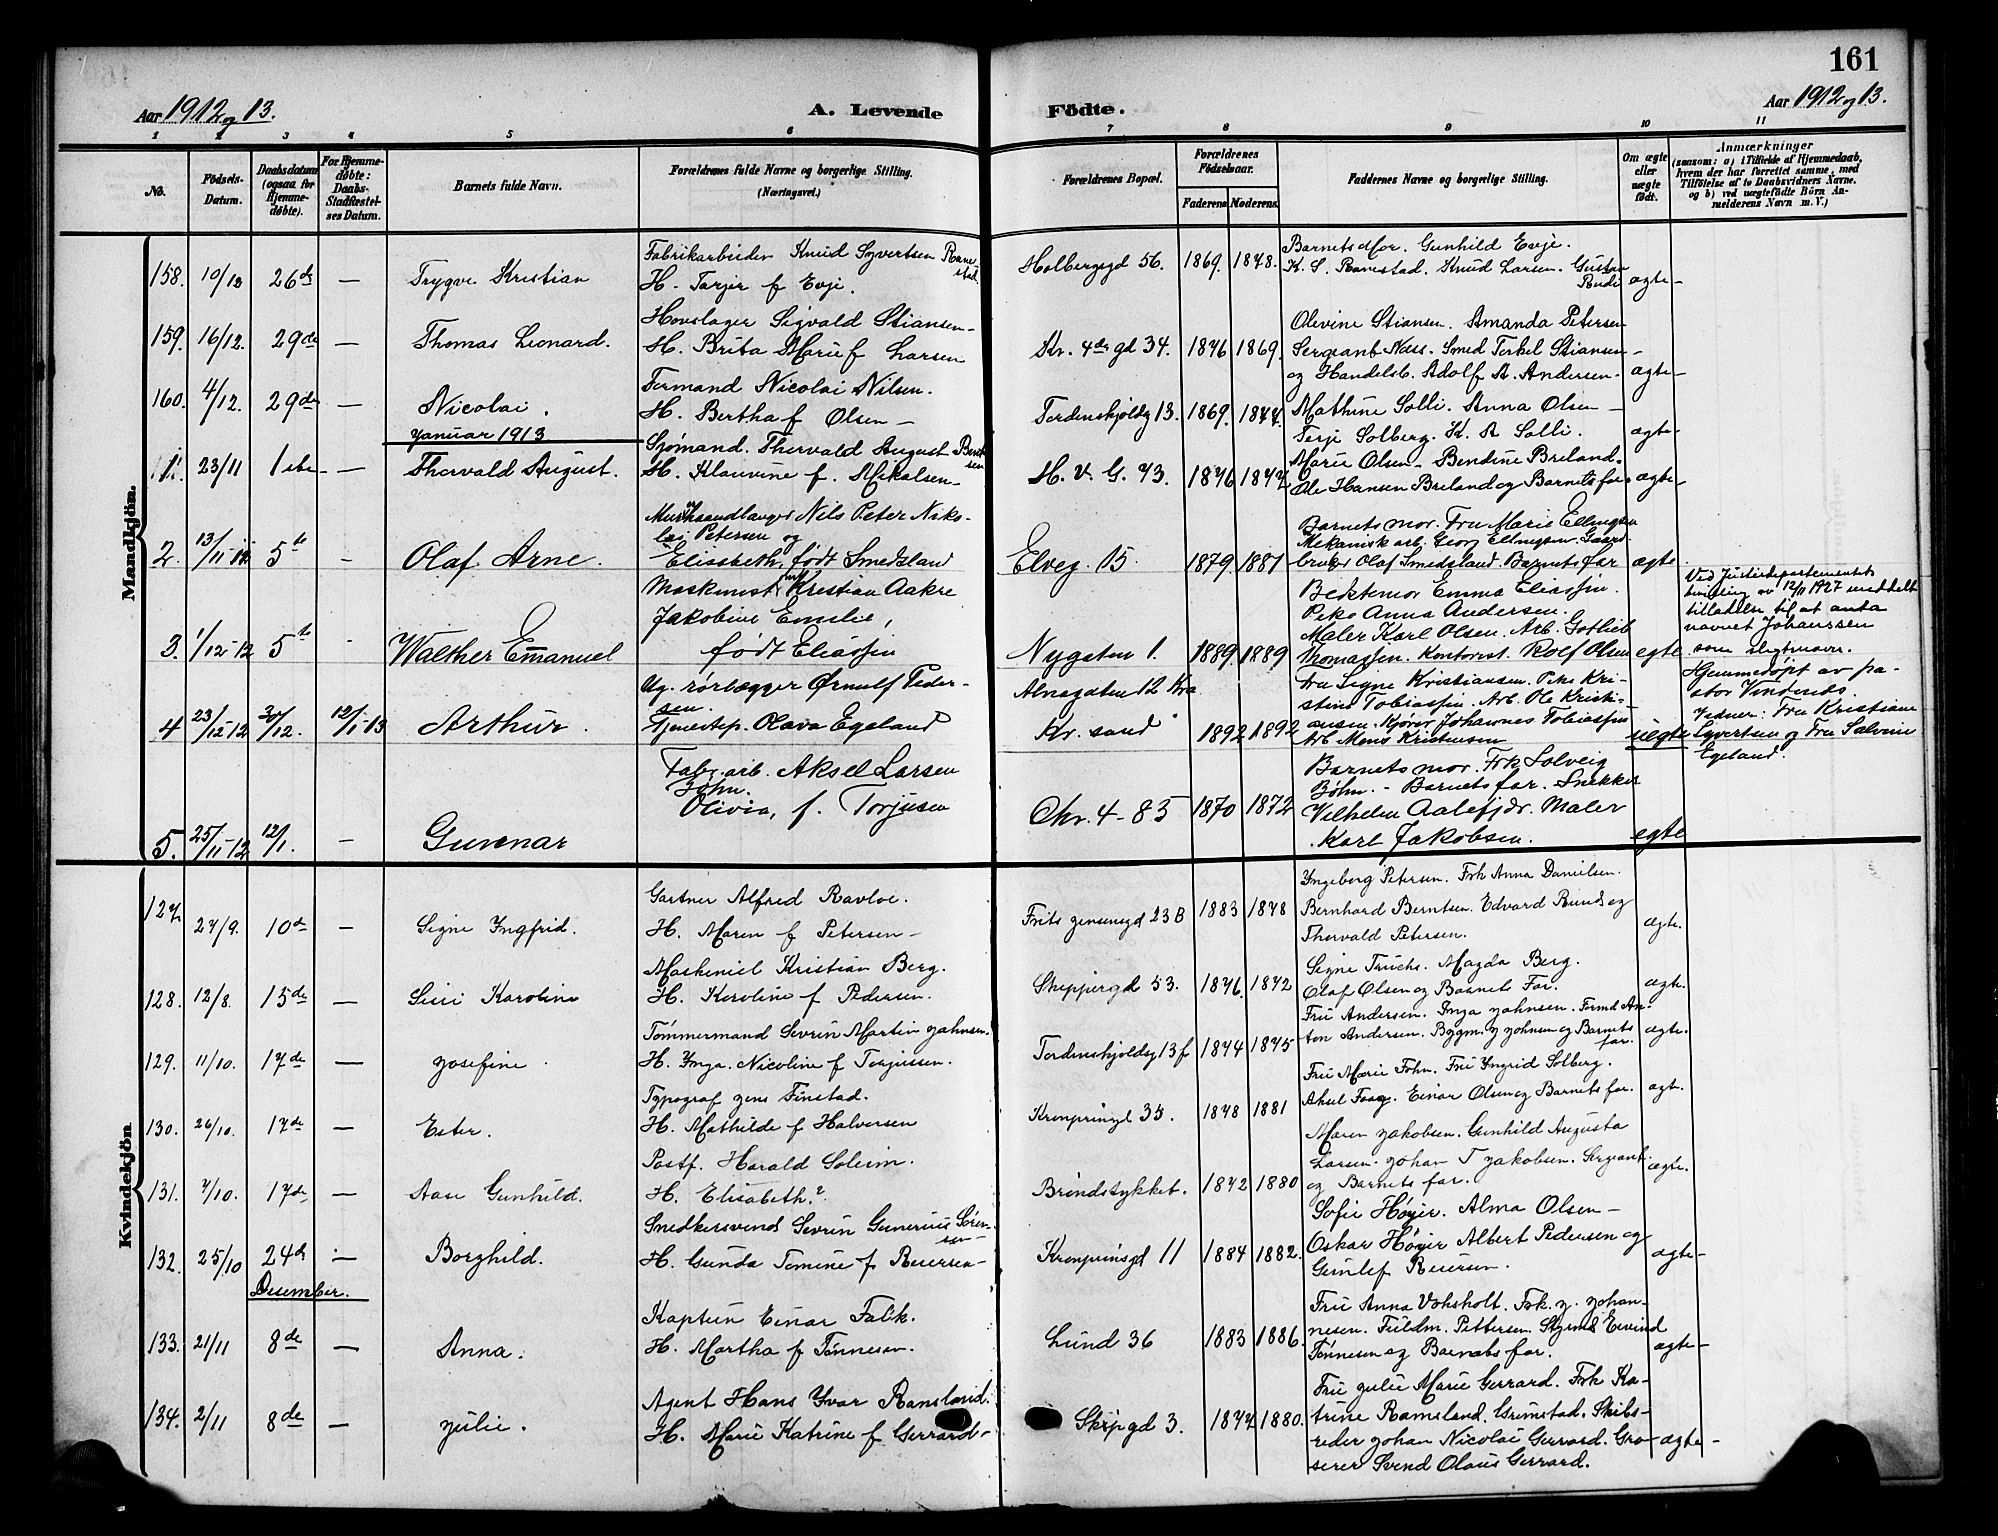 161
Aar 1912 og 13.
A. Levende Födte.
Aar 1912 og 13.
1 2 3 4 5 6 7 8 9 10 11
No.
Födsels-Datum.
Daabsdatum (ogsaa for Hjemme-döbte).
For Hjemme-döbte: Daabs-Stadfæstel-ses Datum.
Barnets fulde Navn.
Forældrenes fulde Navne og borgerlige Stilling. (Næringsvei.)
Forældrenes Bopæl.
Forældrenes Födselsaar.
Faderens Moderens.
Faddernes Navne og borgerlige Stilling.
Om ægte eller uægte födt.
Anmærkninger
(saasom: a) i Tilfælde af Hjemmedaab, hvem der har forrettet samme, med Tilföielse af to Daabsvidners Navne. og b) ved uægtefödte Börn Anmelderens Navn m. V.)
Mandkjön.
158. 10/12 26de — Trygve Kristian
Fabrikarbeider Knud Syvertsen Ramestad.
H. Tarjer f Evje.
Holbergsgd 56. 1869. 1878.
Barnets Mor. Gunhild Evje.
K. S. Ramestad. Knud Larsen. Gustav
Rudi
ægte
159. 16/12. 29de — Thomas Leonard.
Hovslager Sigvald Stiansen
H. Brita Marie f Larsen
Kr. 4des gd 34. 1876 1869.
Olevine Stiansen. Amanda Petersen
Sergeant Næss. Smed Terkel Stiansen
og Handelsb. Adolf A. Andersen.
ægte
160. 4/12. 29de — Nicolai.
Formand Nicolai Nilsen.
H. Bertha f Olsen
Tordenskjoldsg 13. 1869. 1877.
Mathine Solli. Anna Olsen
Terje Solberg. K. A Solli.
ægte
Januar 1913
1. 23/11 1ste — Thorvald August.
Sjømand. Thorvald August Berntsen
H. Klauvine f. Mikalsen
H. V. G. 73. 1876 1877
Marie Olsen. Bendine Breland
Ole Hansen Breland og Barnets far.
ægte
2. 13/11-12 5te - Olaf Arne.
Murhaandlanger Nils Peter Niko-
lai Petersen og
Elissbeth, født Smedsland
Elveg. 15. 1879. 1881
Barnets mor. Fru Marie Ellingsen
Mekanisk arb. Georg Ellingsen. Gaard
bruger Olaf Smedsland. Barnets far
ægte
3. 1/12-12 5te - Walther Emanuel
Maskinist Kristian Aakre
Jakobine Emelie,
født Eliassen
Nygaten 1. 1889. 1889
Bedstemor Emma Eliassen.
Peke Anna Andersen.
Maler Karl Olsen. Arb. Gotlieb
Thomassen. Kontorist. Rolf Olsen
egte
Ved Justisdepartementets
bevilling av 12/11 1927 meddelt
tilladelse til at anta
navnet Johanssen
som slegtsnavn.
4 23/12-12 30/12. 12/1-13 Arthur.
Ug. rørlægger Ørnulf Peder-
sen.
Tjenestep. Olava Egeland
Alnagaten 12 Kra
Kr. sand 1892 1892
Fru Signe Kristiansen. Peke Kri-
stine Tobiassen. Arb. Ole Kristi-
ansen. Kjører Johannes Tobiassen
Arb Mons Kristensen
uegte
Hjemmedøpt av pa-
stor Vinsnes.
Vidner: Fru Kristiane
Syvertsen og Fru Salvine
Egeland.
5. 25/11-12 12/1. — Gunnar
Fabr. arb. Aksel Larsen
Bøhn.
Olivia, f. Torjusen
Chr. 4-85 1870 1872
Barnets mor. Frk Solveig
Bøhn. - Barnets far. Snekker
Vilhelm Aalefjær. Maler
Karl Jakobsen.
egte
Kvindekjön
127. 27/9. 10de — Signe Ingfrid.
Gartner Alfred Ravloe.
H. Maren f Petersen
Frits Jensensgd 23 B 1883 1878
Ingeborg Petersen. Frk Anna Danielsen.
Bernhard Berntsen. Edvard Rund og
Thorvald Petersen.
ægte.
128. 12/8. 15de — Siri Karoline
Maskenist Kristian Berg.
H. Karoline f Pedersen.
Skippergd 53. 1876. 1872
Signe Fuchs. Magda Berg.
Olaf Olsen og Barnets Far.
ægte.
129. 11/10. 17de — Josefine.
Tømmermand Sevrin Martin Johnsen.
H. Inga Nicoline f Torjussen.
Tordenskjoldsg 13 f 1874 1875
Fru Andersen. Inga Johnsen. Formd An-
ton Andersen. Bygm. J Johnsen og Barnets
far.
ægte.
130. 26/10. 17de — Ester.
Typograf Jens Finstad.
H. Mathilde f Halvorsen
Kronprinsgd 35. 1878 1881
Fru Marie Føhn. Fru Ingrid Solberg.
Aksel Foog. Einar Olsen og Barnets far.
ægte.
131. 7/10. 17de — Aase Gunhild.
Postf. Harald Soleim.
H. Elisabeth?
Brøndstykket. 1872 1880
Maren Jakobsen. Gunhild Augusta
Larsen. Johan T Jakobsen. Sergeant
og Barnets far.
ægte.
132. 25/10 24de — Borghild.
Snedkersvend Sevrin Gunerius Søren-
sen
H. Gunda Tomine f Reiersen
Kronprinsgd 11 1884 1882.
Sofie Høyer. Alma Olsen
Oskar Høyer Albert Pedersen og
Gunlef Reiersen.
ægte
Desember.
133. 21/11 8de — Anna.
Kaptein Einar Falk.
H. Martha f Tønnesen.
Lund 36 1883 1886.
Fru Anna Vohsholt. Frk. J. Johan-
nesen. Fuldm. Pettersen. Styrmd Eivind
Tønnesen og Barnets far.
ægte
134. 2/11 8de — Julie.
Agent Hans Ivar Ramsland.
H. Marie Katrine f Gerrard
Skipgd 3. 1877 1880.
Fru Julie Marie Gerrard. Frk Ka-
trine Ramsland. Grimstad. Skibs-
reder Johan Nicolai Gerrard. Gro-
serer Svend Olaus Gerrard.
ægte